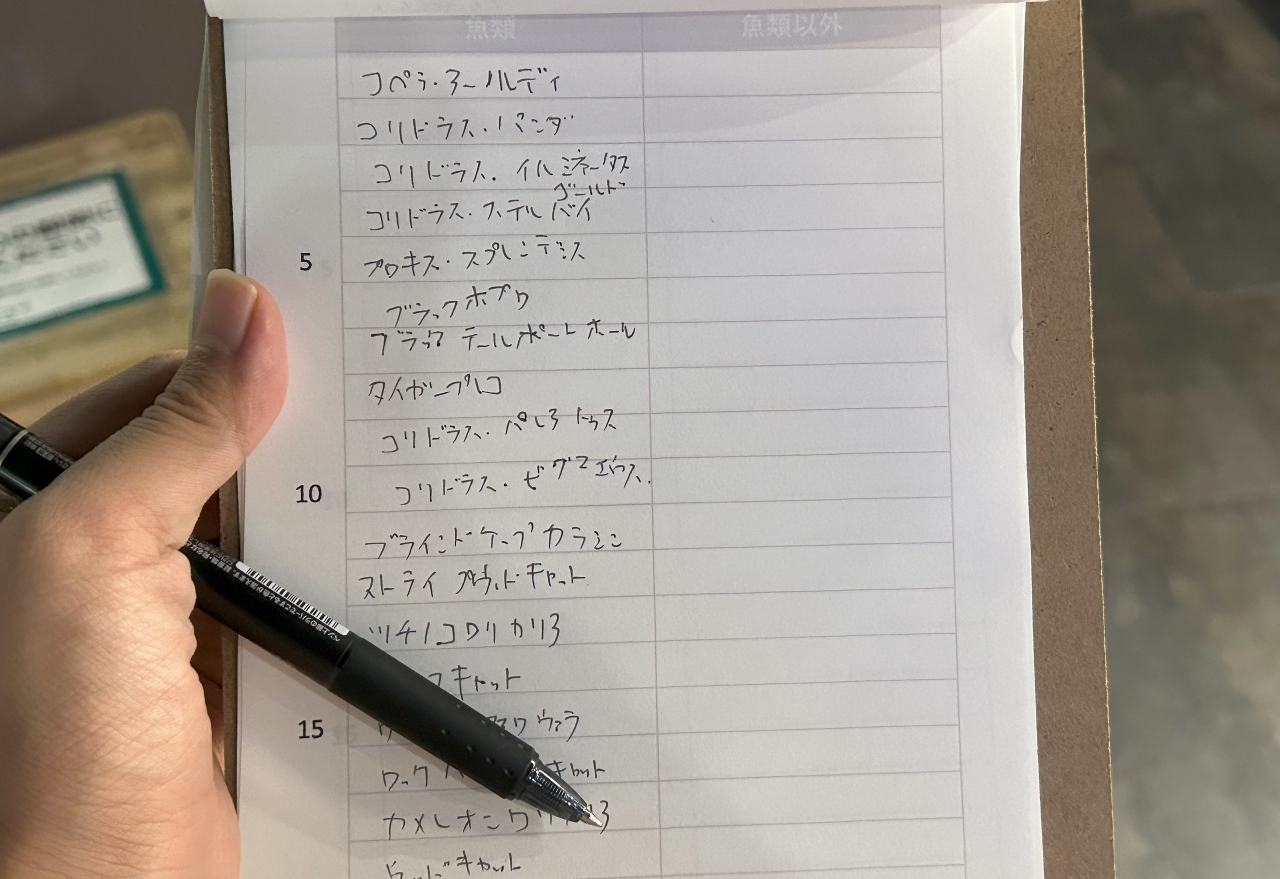 魚類 魚類以外
コペラ・アーノルディ
コリドラス・パンダ
コリドラス・イルミネータス
ゴールド
コリドラス・ステルバイ
5 ブロキス・スプレンデンス
ブラックホプロ
ブラックテールポートホール
タイガープレコ
コリドラス・パレアトゥス
10 コリドラス・ピグマエウス.
ブラインドケーブカラシン
ストライプウッドキャット
ツチノコワリカリア
キャット
15
ロック キャット
カメレオンワリカリア
ウッドキャット